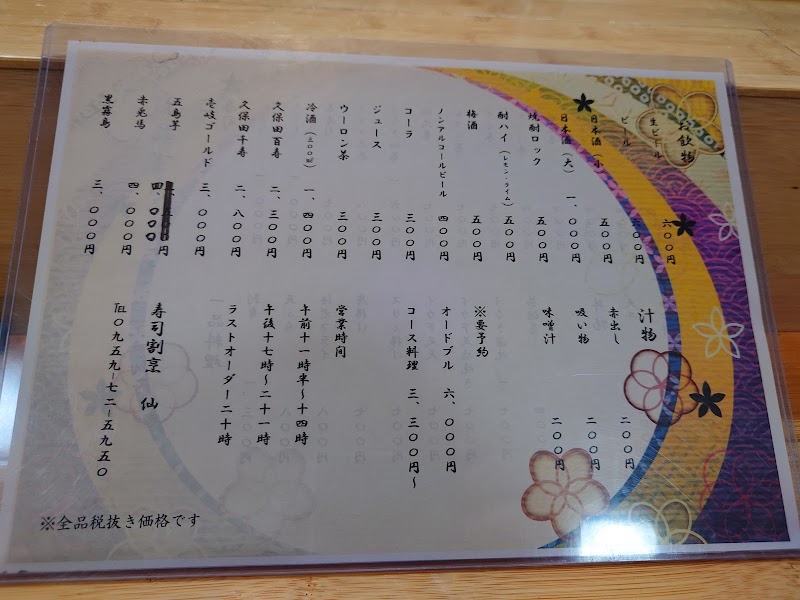 お飲物
生ビール 六〇〇円
ビール 〇〇円
日本酒（小） 五〇〇円
日本酒（大） 一、〇〇〇円
焼酎ロック 五〇〇円
酎ハイ（レモン・ライム） 五〇〇円
梅酒 五〇〇円
ノンアルコールビール 四〇〇円
コーラ 三〇〇円
ジュース 三〇〇円
ウーロン茶 三〇〇円
冷酒（三〇〇㎖） 一、四〇〇円
久保田百寿 二、三〇〇円
久保田千寿 二、八〇〇円
壱岐ゴールド 三、〇〇〇円
五島芋 四、〇〇〇円
赤兎馬 四、〇〇〇円
黒霧島 三、〇〇〇円
汁物
赤出し 二〇〇円
吸い物 二〇〇円
味噌汁 二〇〇円
※要予約
オードブル 六、〇〇〇円
コース料理 三、三〇〇円～
営業時間
午前十一時半～十四時
午後十七時～二十一時
ラストオーダー二十時
寿司割烹 仙
℡〇九五九-七二-五九五〇
※全品税抜き価格です